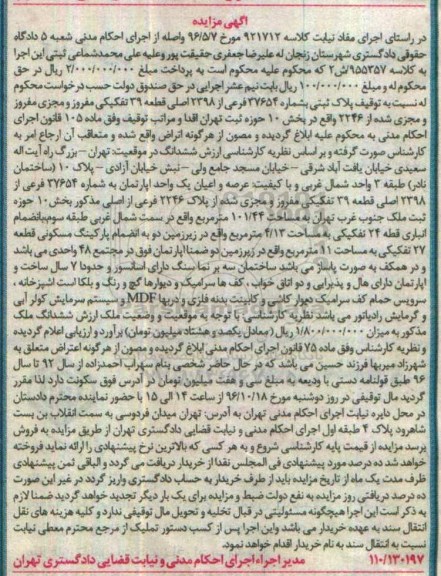 آگهی مزایده
در راستای اجرای مفاد نیابت کلاسه ۹۲۱۷۱۲ مورخ ۹۶/۵/۷ واصله از اجرای احکام مدنی شعبه ۵ دادگاه
حقوقی دادگستری شهرستان زنجان له علیرضا جعفری حقیقت پور وعلیه علی محمدشماعی ثبتی این اجرا
به کلاسه ۹۵۵۳۵۷/ش۲ که محکوم علیه محکوم است به پرداخت مبلغ ۲/۰۰۰/۰۰۰/۰۰۰ ریال در حق
محکوم له و مبلغ ۱۰۰/۰۰۰/۰۰۰ ریال بابت نیم عشر اجرایی در حق صندوق دولت حسب درخواست محکوم
له نسبت به توقیف پلاک ثبتی بشماره ۳۷۶۵۴ فرعی از ۲۳۹۸ اصلی قطعه ۳۹ تفکیکی مفروز و مجزی مفروز
و مجزی شده از ۲۲۴۶ واقع در بخش ۱۰ حوزه ثبت تهران اقدا و مراتب توقیف وفق ماده ۱۰۵ قانون اجرای
احکام مدنی به محکوم علیه ابلاغ گردیده و مصون از هرگونه اتراض واقع شده و متعاقب آن ارجاع امر به
کارشناس صورت گرفته و بر اساس نظریه کارشناسی ارزش ششدانگ در موقعیت: تهران – بزرگ راه آیت اله
سعیدی خیابان یافت آباد شرقی – خیابان مسجد جامع ولی – نبش خیابان آزادی – پلاک ۱۰ (ساختمان
نادر) طبقه ۳ واحد شمال غربی و با کیفیت: عرصه و اعیان یک واحد اپارتمان به شماره ۳۷۶۵۴ فرعی از
۲۳۹۸ اصلی قطعه ۳۹ تفکیکی مفروز و مجزی شده از پلاک ۲۲۴۶ فرعی از اصلی مذکور بخش ۱۰ حوزه
ثبت ملک جنوب غرب تهران به مساحت ۱۰۱/۴۴ مترمربع واقع در سمت شمال غربی طبقه سوم بانضمام
انباری قطه ۲۴ تفکیکی به مساحت ۴/۱۳ مترمربع واقع در زیرزمین دو به انضمام پارکینگ مسکونی قطعه
۲۷ تفکیکی به مساحت ۱۱ مترمربع واقع در زیرزمین دو ضمنا اپارتمان فوق در مجتمع ۴۸ واحدی می باشد
و در همکف به صورت پاساژ می باشد ساختمان سه بر نما سنگ دارای اسانسور و حدودا ۷ سال ساخت و
اپارتمان دارای هال و پذیرایی و دو اتاق خواب ، کف ها سرامیک و دیوارها گچ و رنگ و بلکا است اشپزخانه ،
سرویس حمام کف سرامیک دیوار کاشی و کابینت بدنه فلزی و دربها MDF و سیستم سرمایش کولر آبی
و گرمایش رادیاتور می باشد نظریه کارشناسی : با توجه به موقعیت و وضعیت ملک ارزش ششدانگ ملک
مذکور به میزان ۱/۸۰۰/۰۰۰/۰۰۰ ریال (معادل یکصد و هشتاد میلیون تومان) برآورد و ارزیابی اعلام گردیده
و نظریه کارشناس وفق ماده ۷۵ قانون اجرای احکام مدنی ابلاغ گردیده و مصون از هرگونه اعتراض متعلق به
شهرزاد میربها فرزند حسین می باشد که در حال حاضر شخصی بنام سهراب احمدزاده از سال ۹۲ تا سال
۹۶ طبق قولنامه دستی با ودیعه به مبلغ سی و هفت میلیون تومان در آدرس فوق سکونت دارد لذا مقرر
گردید مال توقیفی در روز دوشنبه مورخ ۹۶/۱۰/۱۸ از ساعت ۱۴ الی ۱۵ با حضور نماینده محترم دادستان
در محل دایره نیابت اجرای احکام مدنی تهران به آدرس: تهران میدان فردوسی به سمت انقلاب بن بست
شاهرود پلاک ۴ طبقه اول اجرای احکام مدنی و نیابت قضایی دادگستری تهران از طریق مزایده به فروش
برسد مزایده از قیمت پایه کارشناسی شروع و به هر کسی که بالاترین نرخ پیشنهادی را ارائه نماید فروخته
خواهد شد ده درصد مورد پیشنهادی فی المجلس نقدا از خریدار دریافت می گردد و الباقی ثمن پیشنهادی
ظرف مدت یک ماه از تاریخ مزایده باید از طرف خریدار به حساب دادگستری واریز گردد در غیر این صورت
ده درصد دریافتی روز مزایده به نفع دولت ضبط و مزایده برای یک بار دیگر تجدید خواهد گردید ضمنا لازم
به ذکر است این اجرا هیچگونه مسئولیتی در قبال تخلیه و تحویل مال توقیفی ندارد و کلیه هزینه های نقل
انتقال سند به عهده خریدار می باشد واین اجرا پس از کسب دستور تملیک از مرجع محترم معطی نیابت
نسبت به انتقال سند به نام خریدار اقدام خواهد نمود.
۱۱۰/۱۳۰۱۹۷ مدیر اجراء اجرای احکام مدنی و نیابت قضایی دادگستری تهران